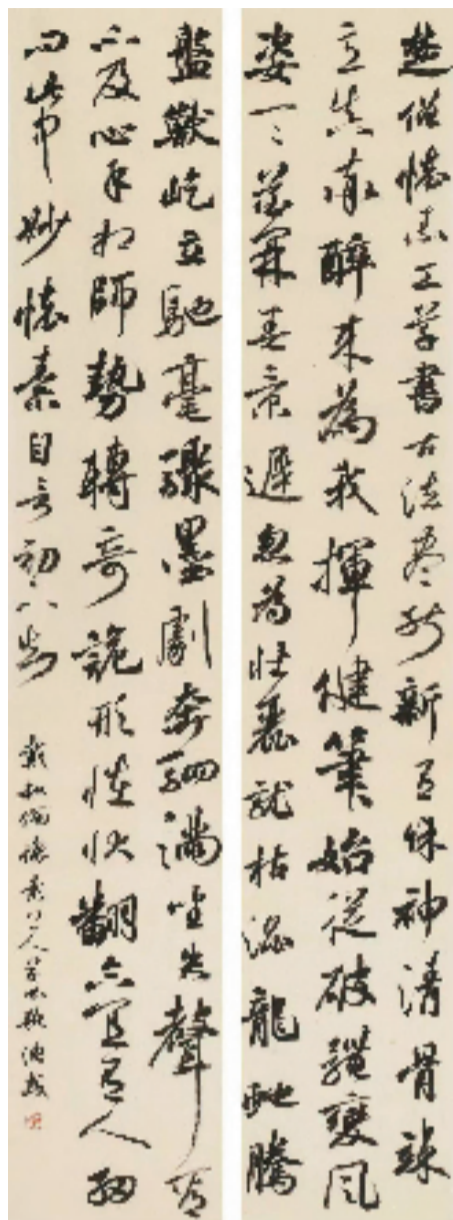 楚僧懷素工草書古法盡能新有餘神清骨竦
意真率醉來為我揮健筆始從破體變風
姿一一花開春景遲忽為壯麗就枯澀龍蛇騰
盤獸屹立馳毫驟墨劇奔駟滿坐失聲看
不及心手相師勢轉奇詭形怪狀翻合宜有人細
問此中妙懷素自言初不知
戴叔倫懷素上人草書歌